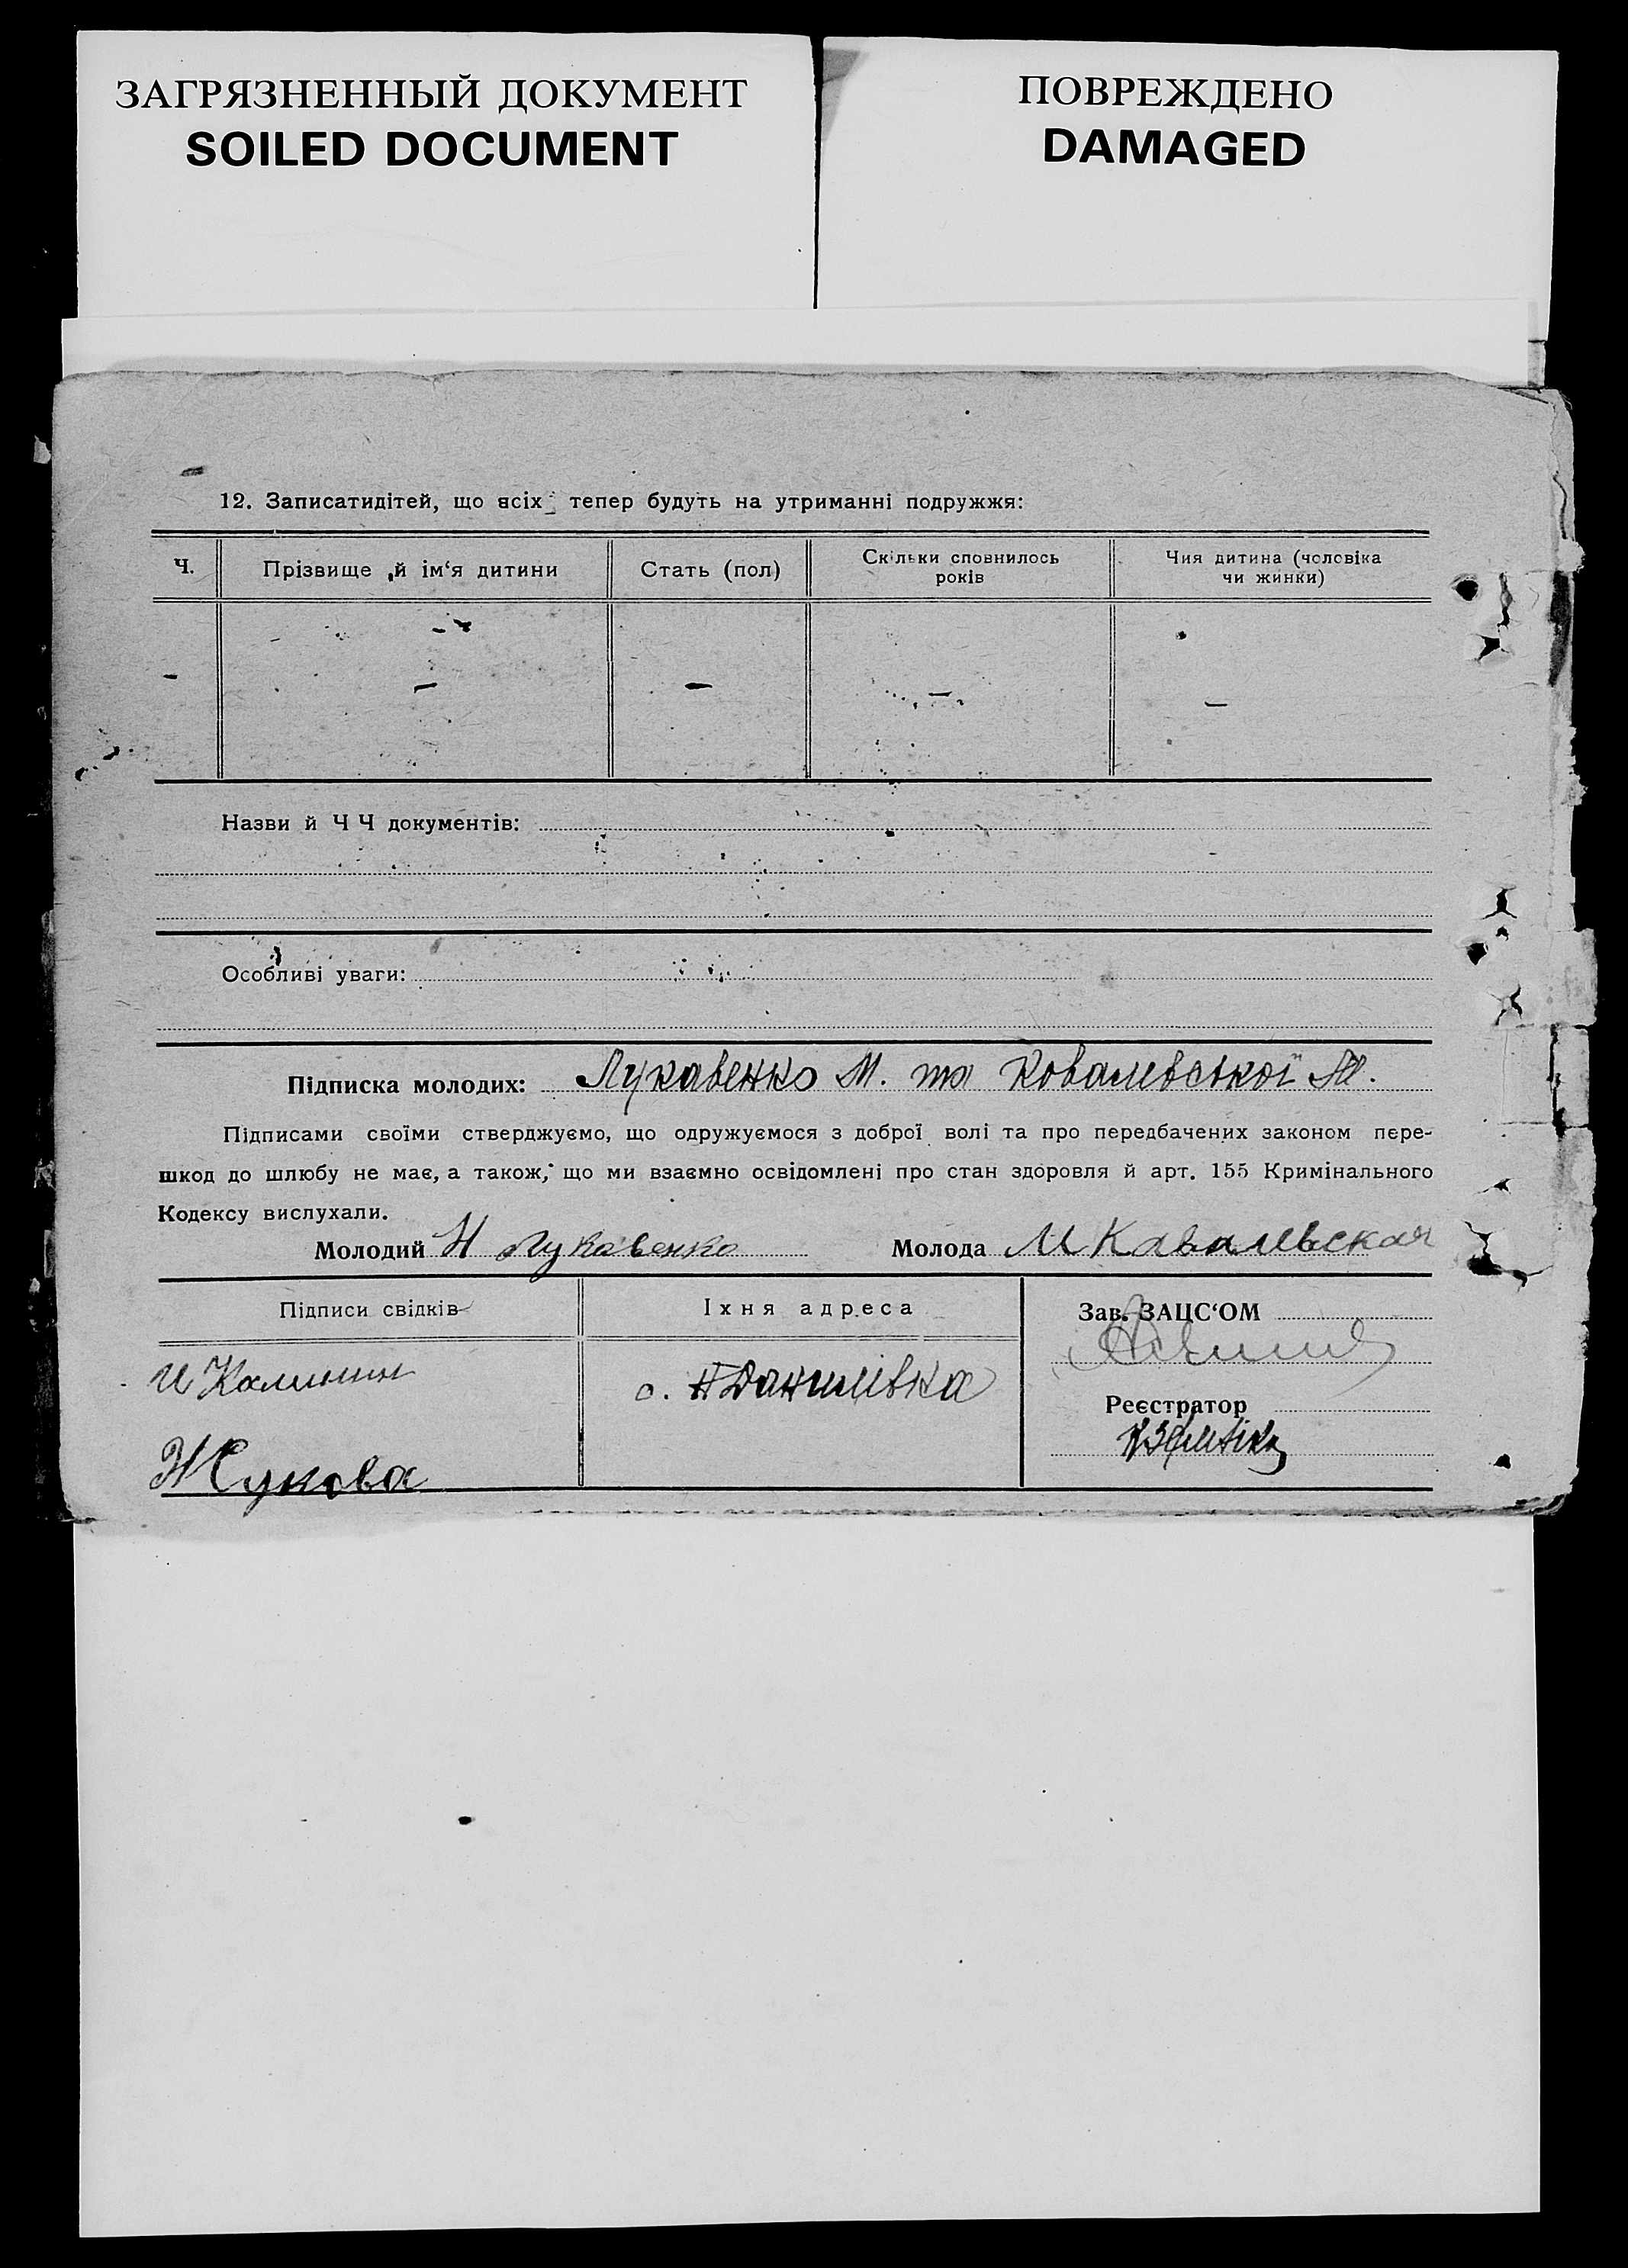 ЗАГРЯЗНЕННЫЙ ДОКУМЕНТ
SOILED DOCUMENT
ПОВРЕЖДЕНО
DAMAGED
12. Записатидітей, що всіх тепер будуть на утриманні подружжя:
Ч. Прізвище й ім‘я дитини Стать (пол) Скільки сповнилось років Чия дитина (чоловіка чи жинки)
– – – – –
Назви й Ч Ч документів:
Особливі уваги:
Підписка молодих: Лукавенко М. та Ковалевської М.
Підписами своїми стверджуємо, що одружуємося з доброї волі та про передбачених законом пере-
шкод до шлюбу не має, а також, що ми взаємно освідомлені про стан здоровля й арт. 155 Кримінального
Кодексу вислухали.
Молодий Н Лукавенко Молода М Кавалевская
Підписи свідків Їхня адреса Зав. ЗАЦС‘ОМ
И Калинин с. Данилівка
Реєстратор